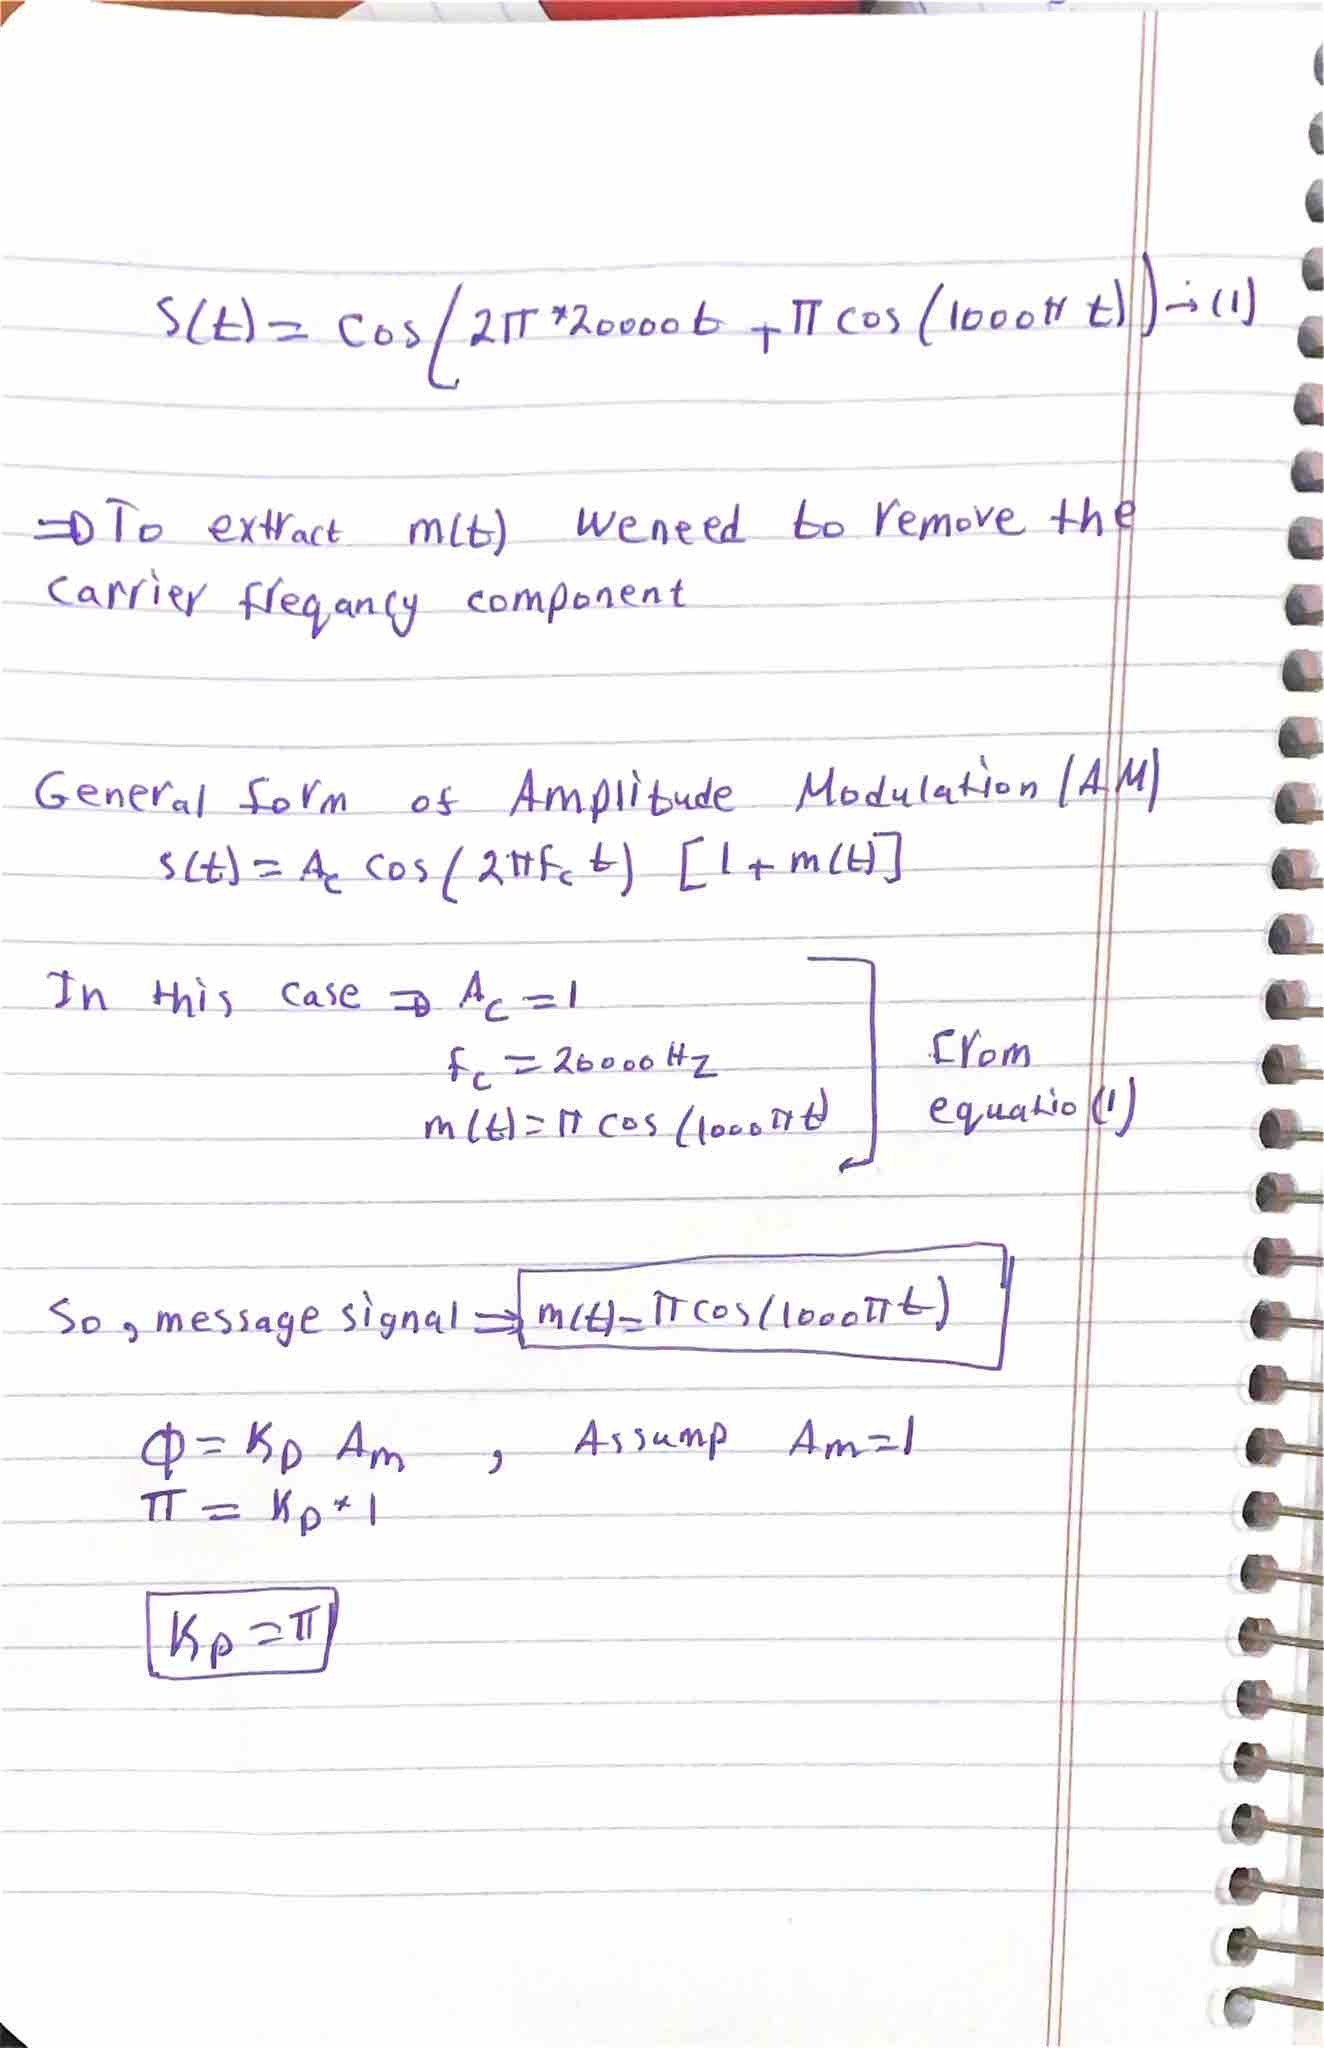 S(t) = Cos(2π*20000t + π cos(1000π t)) → (1)
⇒ To extract m(t) we need to remove the
carrier freqancy component
General form of Amplitude Modulation (AM)
s(t) = Ac cos(2πfc t) [1 + m(t)]
In this case ⇒ Ac = 1
fc = 20000 Hz
From
m(t) = π cos(1000πt)
equatio (1)
So, message signal ⇒ m(t) = π cos(1000πt)
Φ = Kp Am , Assump Am = 1
π = Kp * 1
Kp = π